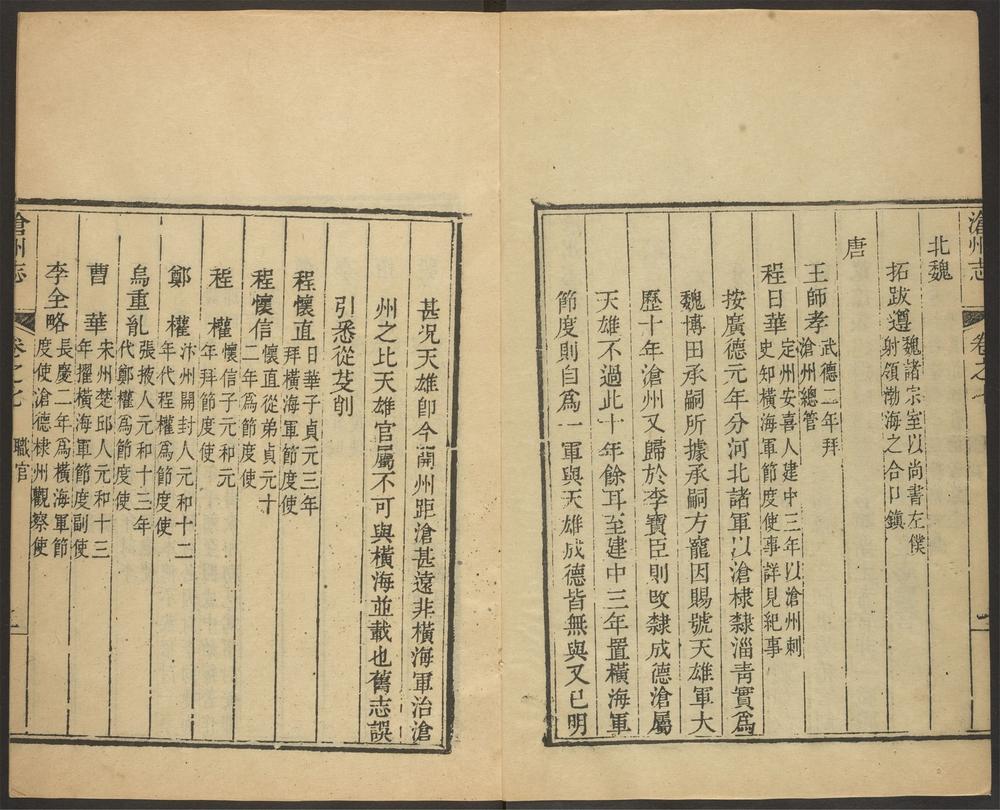 滄州志
卷之七
北魏
拓跋遵
魏諸宗室以尚書左僕
射領渤海之合口鎮
唐
王師孝
武德二年拜
滄州總管
程日華
定州安喜人建中三年以滄州刺
史知橫海軍節度使事詳見紀事
按廣德元年分河北諸軍以滄棣隸淄靑實爲
魏博田承嗣所據承嗣方寵因賜號天雄軍大
歷十年滄州又歸於李寶臣則改隸成德滄屬
天雄不過此十年餘耳至建中三年置橫海軍
節度則自爲一軍與天雄成德皆無與又已明
甚况天雄卽今開州距滄甚遠非橫海軍治滄
州之比天雄官屬不可與橫海並載也舊志誤
引悉從芟削
程懷直
日華子貞元三年
拜橫海軍節度使
程懷信
懷直從弟貞元十
二年爲節度使
程權
懷信子元和元
年拜節度使
鄭權
汴州開封人元和十二
年代程權爲節度使
烏重胤
張掖人元和十三年
代鄭權爲節度使
曹華
宋州楚邱人元和十三
年擢橫海軍節度副使
李全略
長慶二年爲橫海軍節
度使滄德棣州觀察使
滄州志
卷之七
職官
二